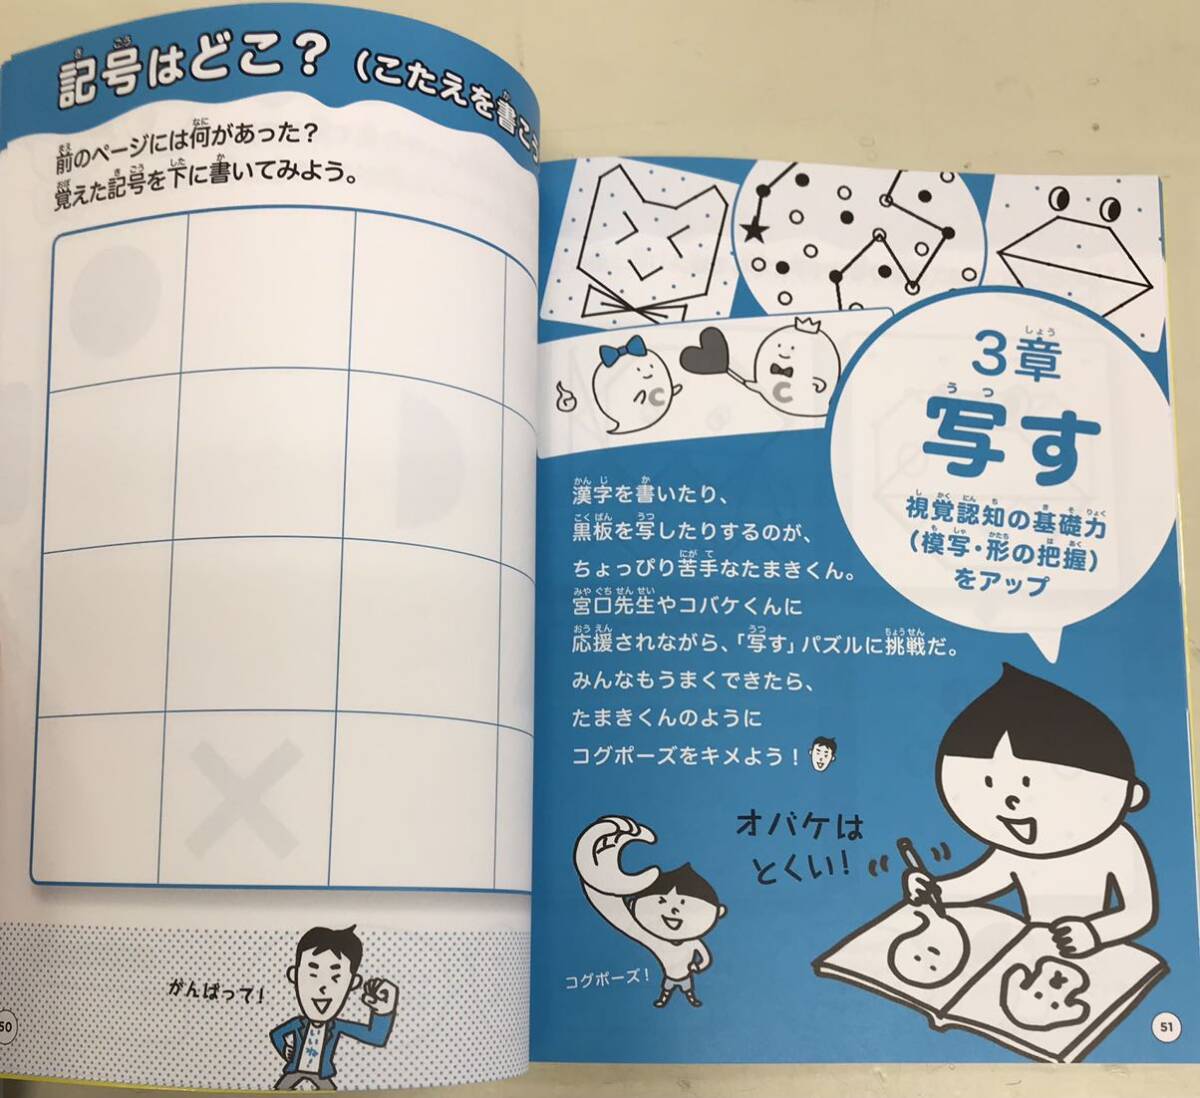 記号はどこ？（こたえを書こう
前のページには何があった？
覚えた記号を下に書いてみよう。
がんばって！
いいね！
50
3章
写す
視覚認知の基礎力
（模写・形の把握）
をアップ
C
C
漢字を書いたり、
黒板を写したりするのが、
ちょっぴり苦手なたまきくん。
宮口先生やコバケくんに
応援されながら、「写す」パズルに挑戦だ。
みんなもうまくできたら、
たまきくんのように
コグポーズをキメよう！
オバケは
とくい！
コグポーズ！
51